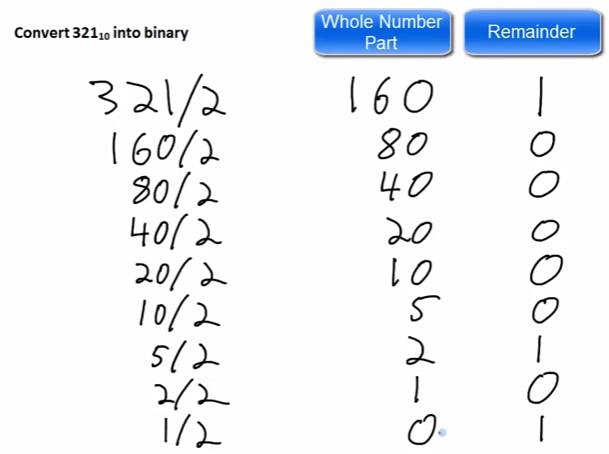 Convert 321₁₀ into binary
Whole Number Part
Remainder
321/2 160 1
160/2 80 0
80/2 40 0
40/2 20 0
20/2 10 0
10/2 5 0
5/2 2 1
2/2 1 0
1/2 0 1